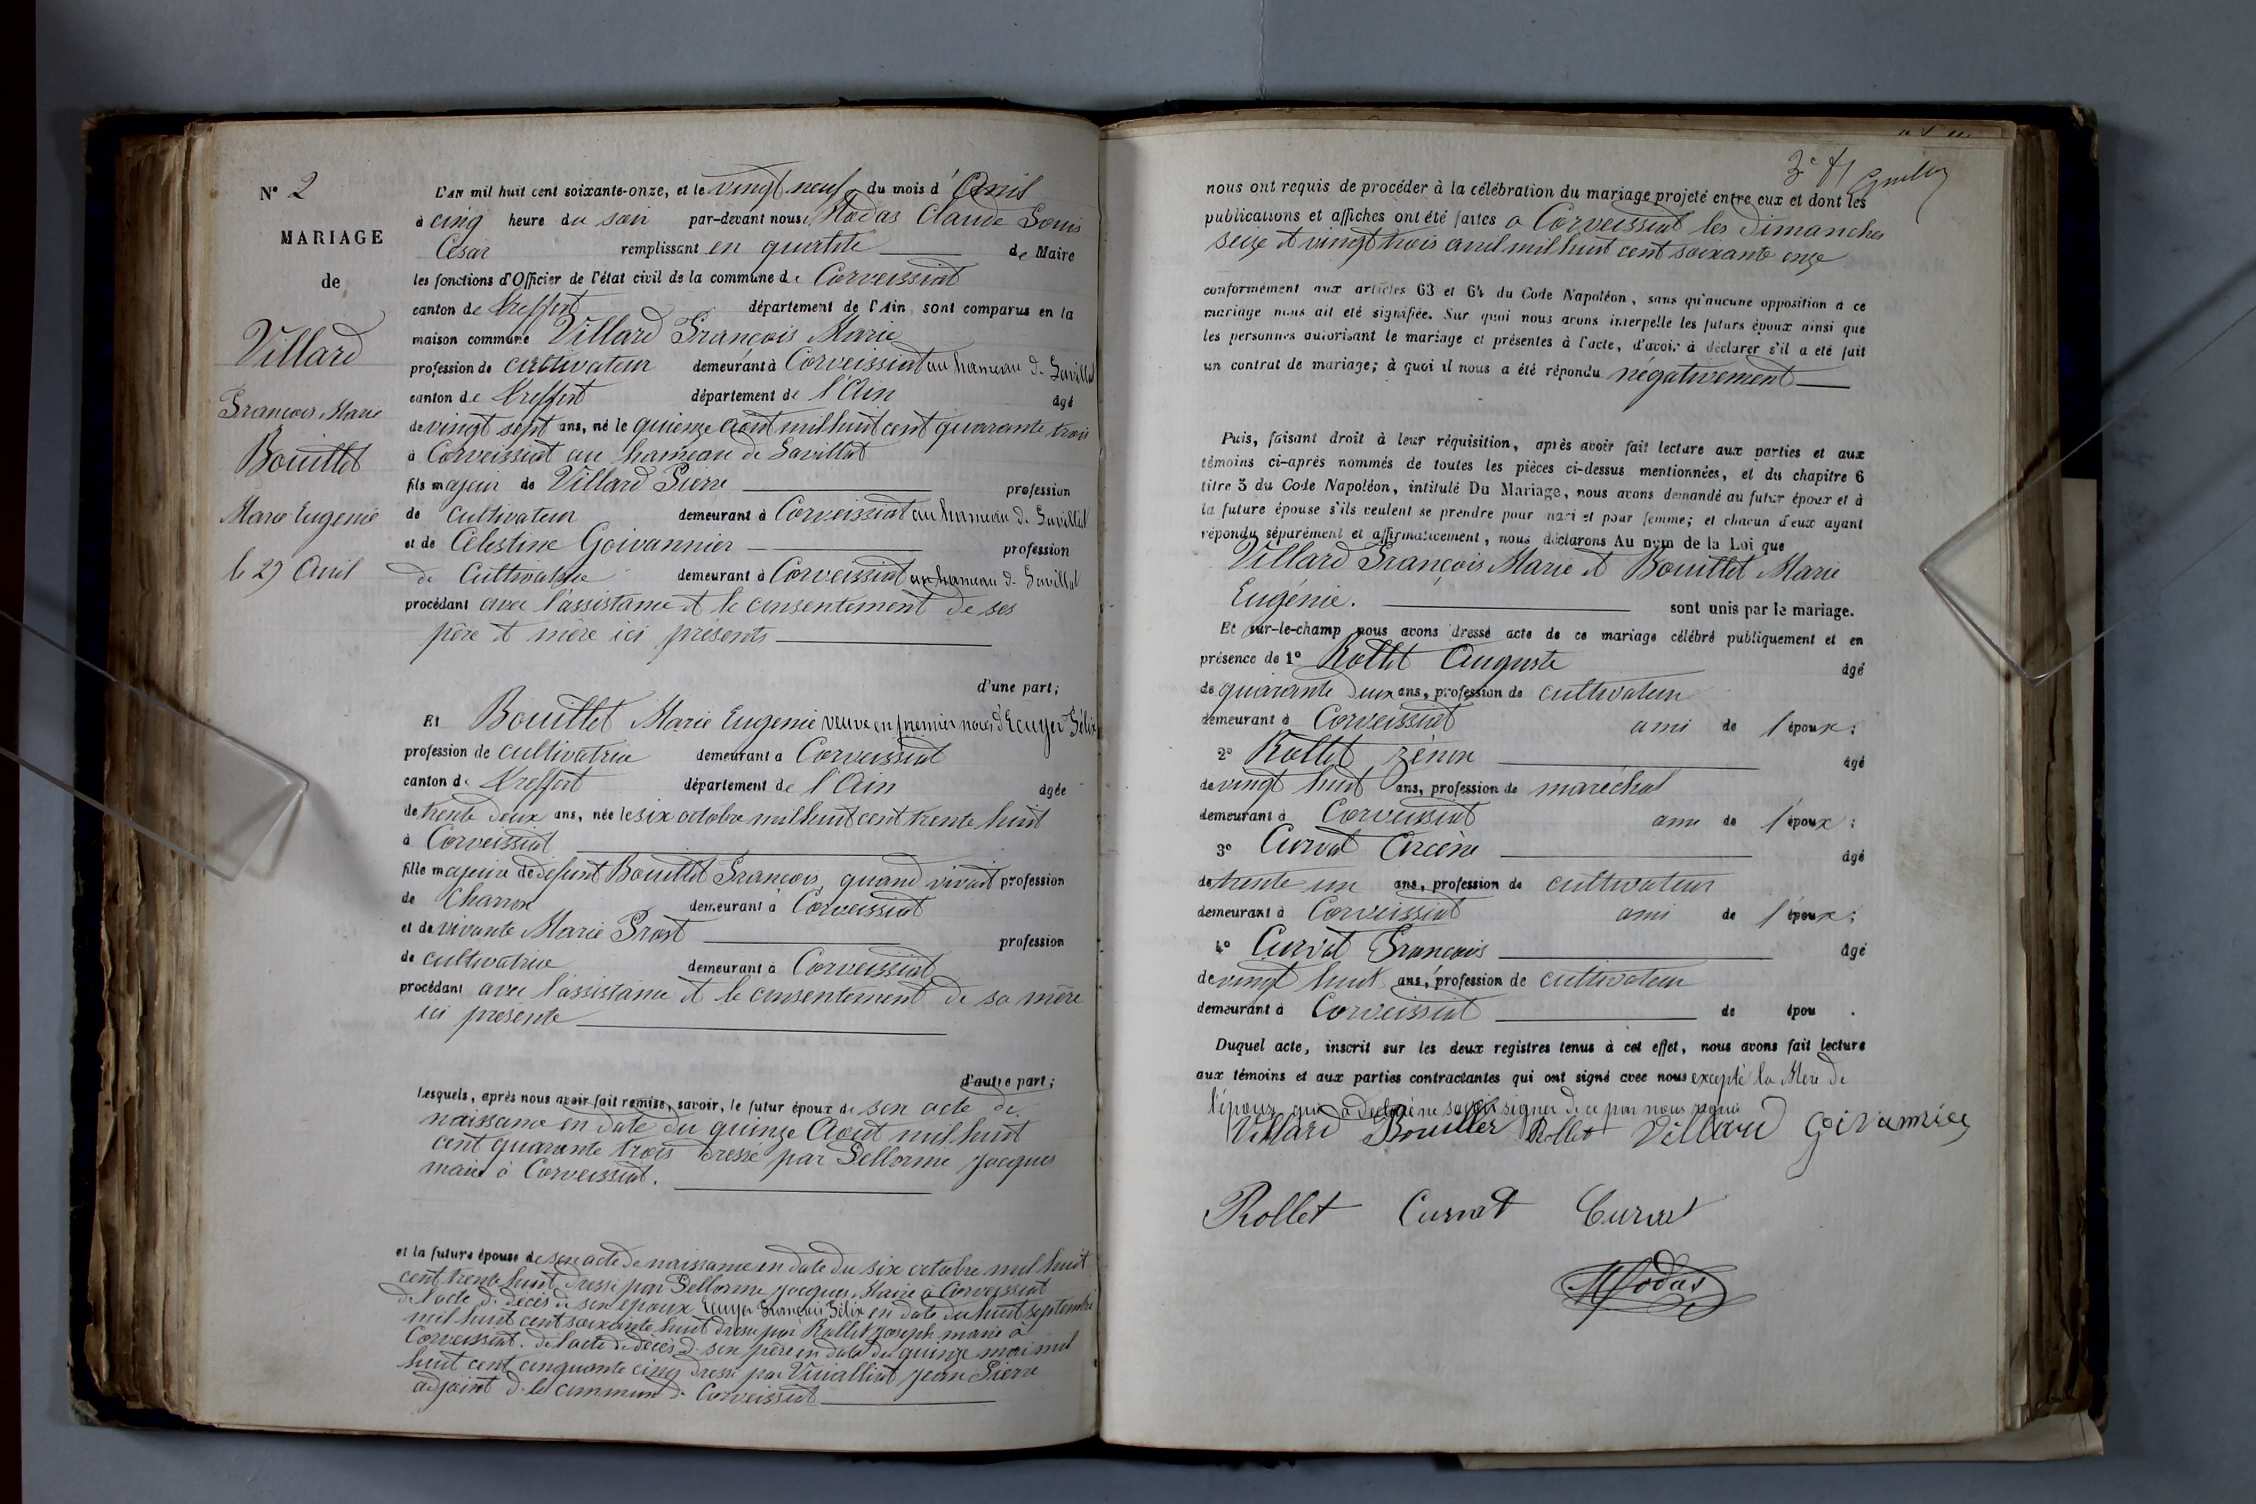 N° 2
MARIAGE
de
Villard
François Marie
Bouillet
Marie Eugenie
le 29 Avril
L'AN mil huit cent soixante-onze, et le vingt neuf du mois d'Avril
à cinq heure du soir par-devant nous Modas Claude Louis
César remplissant en qualité de Maire
les fonctions d'Officier de l'état civil de la commune de Corveissiat
canton de Treffort département de l'Ain, sont comparus en la
maison commune Villard François Marie
profession de cultivateur demeurant à Corveissiat au hameau de Savillat
canton de Treffort département de l'Ain âgé
de vingt sept ans, né le quinze aout mil huit cent quarante trois
à Corveissiat au hameau de Savillat
fils majeur de Villard Pierre profession
de cultivateur demeurant à Corveissiat au hameau de Savillat
et de Célestine Goivannier profession
de Cultivatrice demeurant à Corveissiat au hameau de Savillat
procédant avec l'assistance et le consentement de ses
père et mère ici présents
d'une part;
Et Bouillet Marie Eugenie veuve en premier noces d'Ecuyer Félix
profession de cultivatrice demeurant à Corveissiat
canton de Treffort département de l'Ain âgée
de trente deux ans, née le six octobre mil huit cent trente huit
à Corveissiat
fille majeure de defunt Bouillet François, quand vivait profession
de Charron demeurant à Corveissiat
et de vivante Marie Prost profession
de cultivatrice demeurant à Corveissiat
procédant avec l'assistance et le consentement de sa mère
ici présente
d'autre part;
Lesquels, après nous avoir fait remise, savoir, le futur époux de son acte de
naissance en date du quinze Aout mil huit
cent quarante trois dressé par Dellorme Jacques
maire à Corveissiat.
et la future épouse de son acte de naissance en date du six octobre mil huit
cent trente huit dressé par Dellorme Jacques Maire à Corveissiat
de l'acte de décès de son époux Ecuyer François Félix en date du huit septembre
mil huit cent soixante huit dressé par Rollet Joseph maire à
Corveissiat. de l'acte de décès de son père en date du quinze mai mil
huit cent cinquante cinq dressé par Vuialliat Jean Pierre
adjoint de la commune de Corveissiat
3e f1
nous ont requis de procéder à la célébration du mariage projeté entre eux et dont les
publications et affiches ont été faites à Corveissiat les Dimanches
seize et vingt trois avril mil huit cent soixante onze
conformément aux articles 63 et 64 du Code Napoléon, sans qu'aucune opposition à ce
mariage nous ait été signifiée. Sur quoi nous avons interpellé les futurs époux ainsi que
les personnes autorisant le mariage et présentes à l'acte, d'avoir à déclarer s'il a été fait
un contrat de mariage; à quoi il nous a été répondu négativement
Puis, faisant droit à leur réquisition, après avoir fait lecture aux parties et aux
témoins ci-après nommés de toutes les pièces ci-dessus mentionnées, et du chapitre 6
titre 5 du Code Napoléon, intitulé Du Mariage, nous avons demandé au futur époux et à
la future épouse s'ils veulent se prendre pour mari et pour femme; et chacun d'eux ayant
répondu séparément et affirmativement, nous déclarons Au nom de la Loi que
Villard François Marie et Bouillet Marie
Eugénie. sont unis par le mariage.
Et sur-le-champ nous avons dressé acte de ce mariage célébré publiquement et en
présence de 1° Rollet Auguste âgé
de quarante deux ans, profession de cultivateur
demeurant à Corveissiat ami de l'époux;
2° Rollet Zénon âgé
de vingt huit ans, profession de maréchal
demeurant à Corveissiat ami de l'époux;
3° Curvat Arcène âgé
de trente un ans, profession de cultivateur
demeurant à Corveissiat ami de l'époux;
4° Curvat François âgé
de vingt huit ans, profession de cultivateur
demeurant à Corveissiat de épou .
Duquel acte, inscrit sur les deux registres tenus à cet effet, nous avons fait lecture
aux témoins et aux parties contractantes qui ont signé avec nous excepté la Mere de
l'épouse qui a déclaré ne savoir signer de ce par nous requis
Villard Bouillet Rollet Villard Goivannier
Rollet Curvat Curvat
Modas